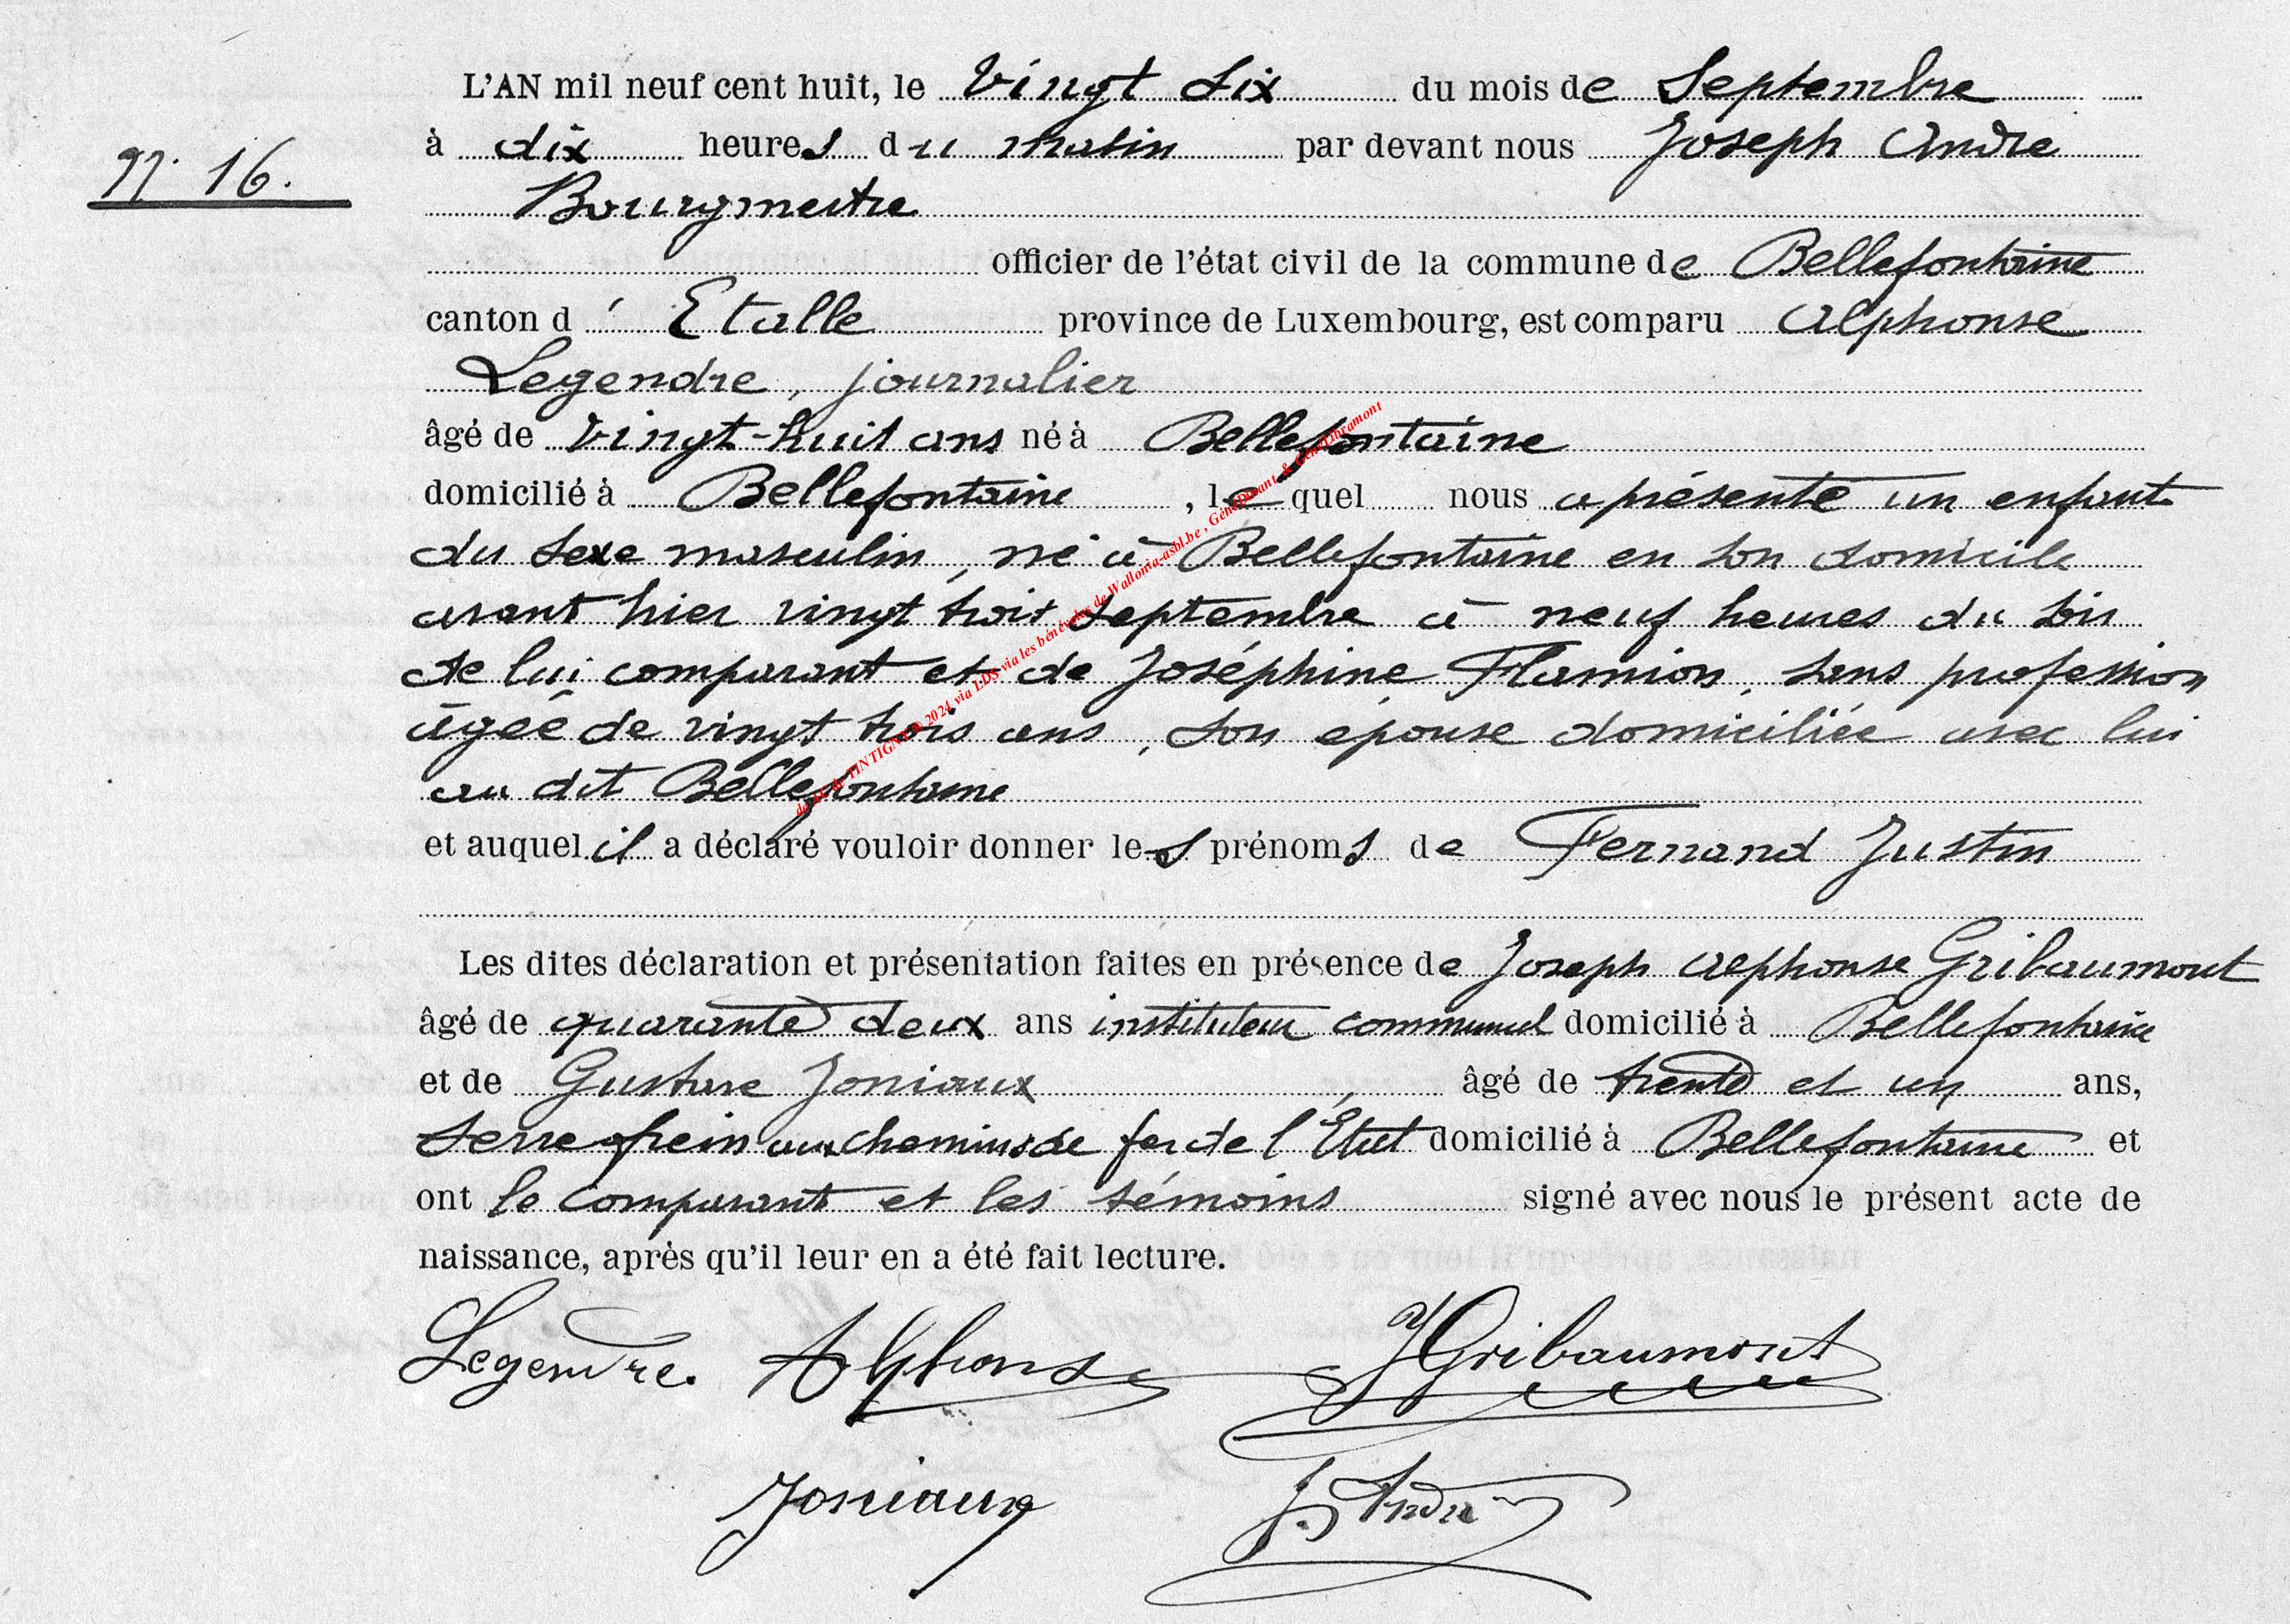 L'AN mil neuf cent huit, le Vingt six du mois de Septembre
à dix heures du matin par devant nous Joseph André
N° 16.
Bourgmestre
officier de l'état civil de la commune de Bellefontaine
canton d' Etalle province de Luxembourg, est comparu Alphonse
Legendre, journalier
âgé de Vingt-huit ans né à Bellefontaine
domicilié à Bellefontaine, lequel nous a présenté un enfant
du sexe masculin, né à Bellefontaine en son domicile
avant hier vingt trois septembre à neuf heures du soir
de lui comparant et de Joséphine Flamion, sans profession
âgée de vingt trois ans, son épouse domiciliée avec lui
au dit Bellefontaine
et auquel il a déclaré vouloir donner les prénoms de Fernand Justin
Les dites déclaration et présentation faites en présence de Joseph Alphonse Gribaumont
âgé de quarante deux ans instituteur communal domicilié à Bellefontaine
et de Gustave Joniaux, âgé de trente et un ans,
serre frein aux chemins de fer de l'Etat domicilié à Bellefontaine et
ont le comparant et les témoins signé avec nous le présent acte de
naissance, après qu'il leur en a été fait lecture.
Legendre. Alphonse JGribaumont
Joniaux J. André
2024 via LDS via les bénévoles de Wallonia-asbl.be, GénéDinant & GénéLibramont